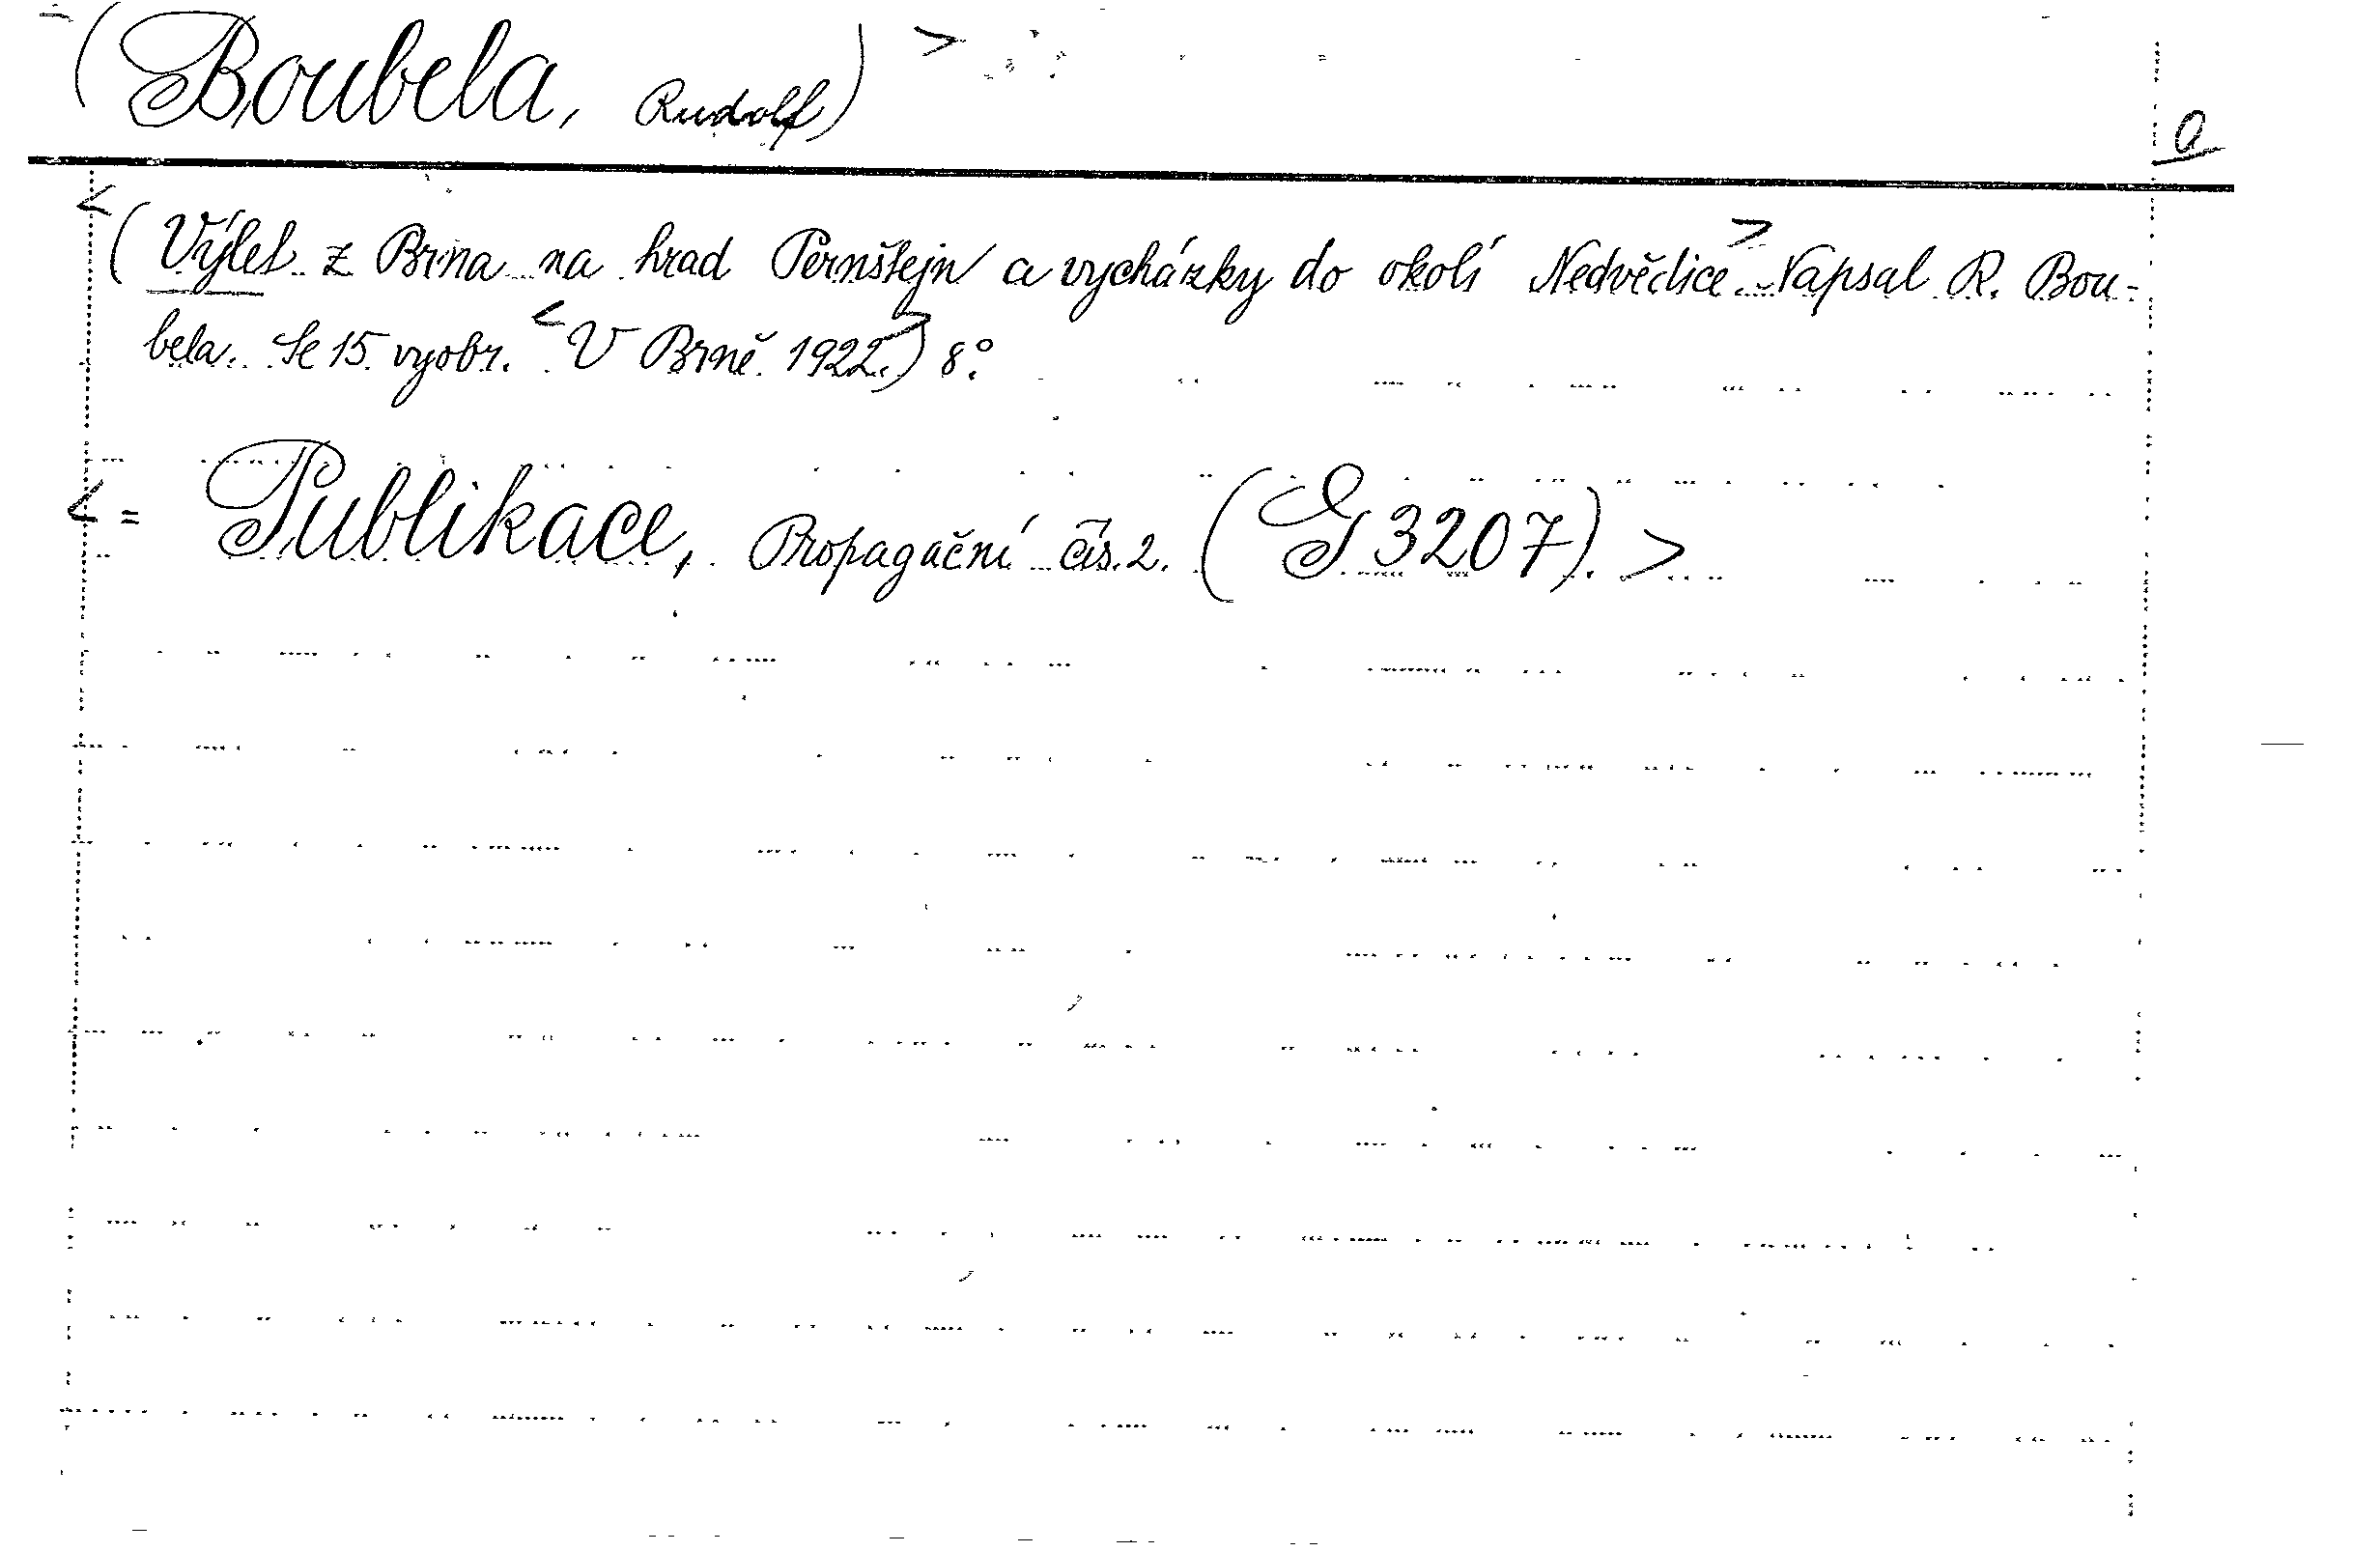 (Boubela, Rudolf) >
a
<
(Výlet z Brna na hrad Pernštejn a vycházky do okolí Nedvědice.> Napsal R. Bou-
bela. Se 15 vyobr. < V Brně 1922.>) 8°.
< = Publikace, Propagační čís. 2. (G 3207). >